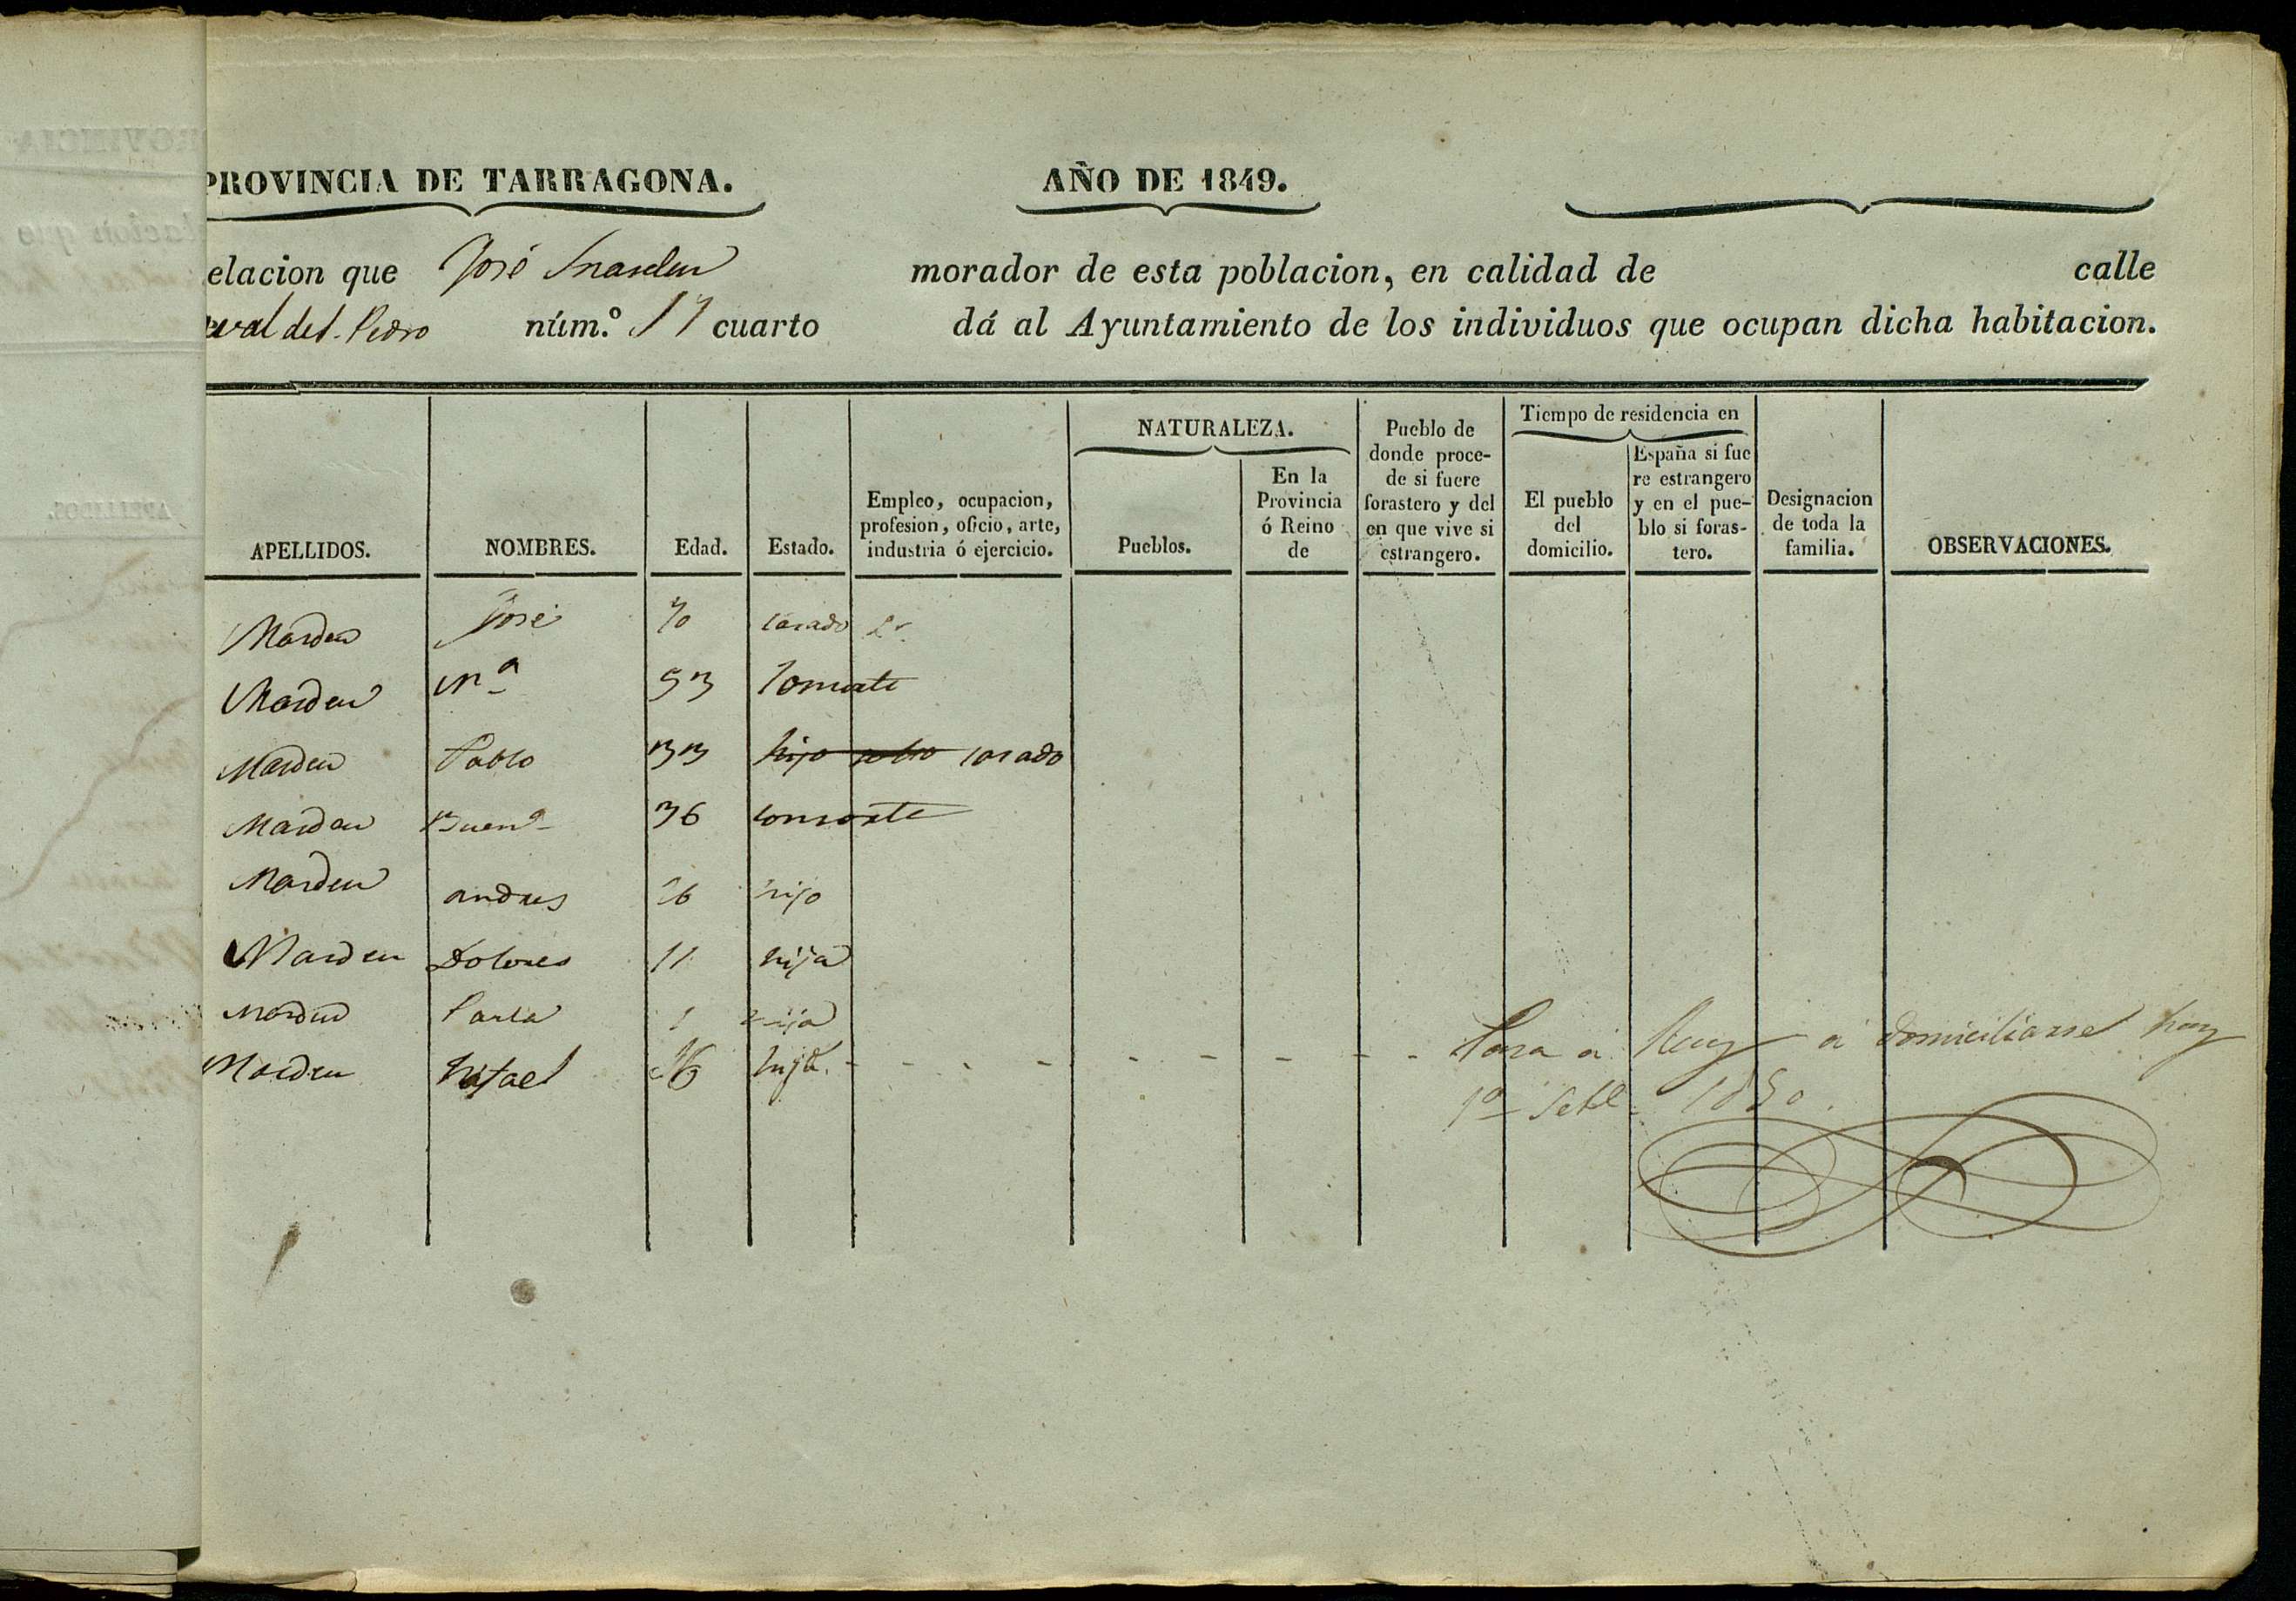 PROVINCIA DE TARRAGONA. AÑO DE 1849.
elacion que José morador de esta poblacion, en calidad de calle
del S. Pedro núm.º 17 cuarto dá al Ayuntamiento de los individuos que ocupan dicha habitacion.
APELLIDOS. NOMBRES. Edad. Estado. Empleo, ocupacion, profesion, oficio, arte, industria ó ejercicio. NATURALEZA. Pueblos. En la Provincia ó Reino de Pueblo de donde procede si fuere forastero y del en que vive si estrangero. Tiempo de residencia en El pueblo del domicilio. España si fuere estrangero y en el pueblo si forastero. Designacion de toda la familia. OBSERVACIONES.
Marden José 70 casado
Marden Mª 53 Consorte
Marden Pablo 33 hijo casado
Marden Buenª 36 consorte
Marden andres 16 hijo
Marden Dolores 11 hija
Marden 1 hija
Marden Rafael 26 hijo. Pasa a Reus a domiciliarse hoy
1º Setbe 1850.